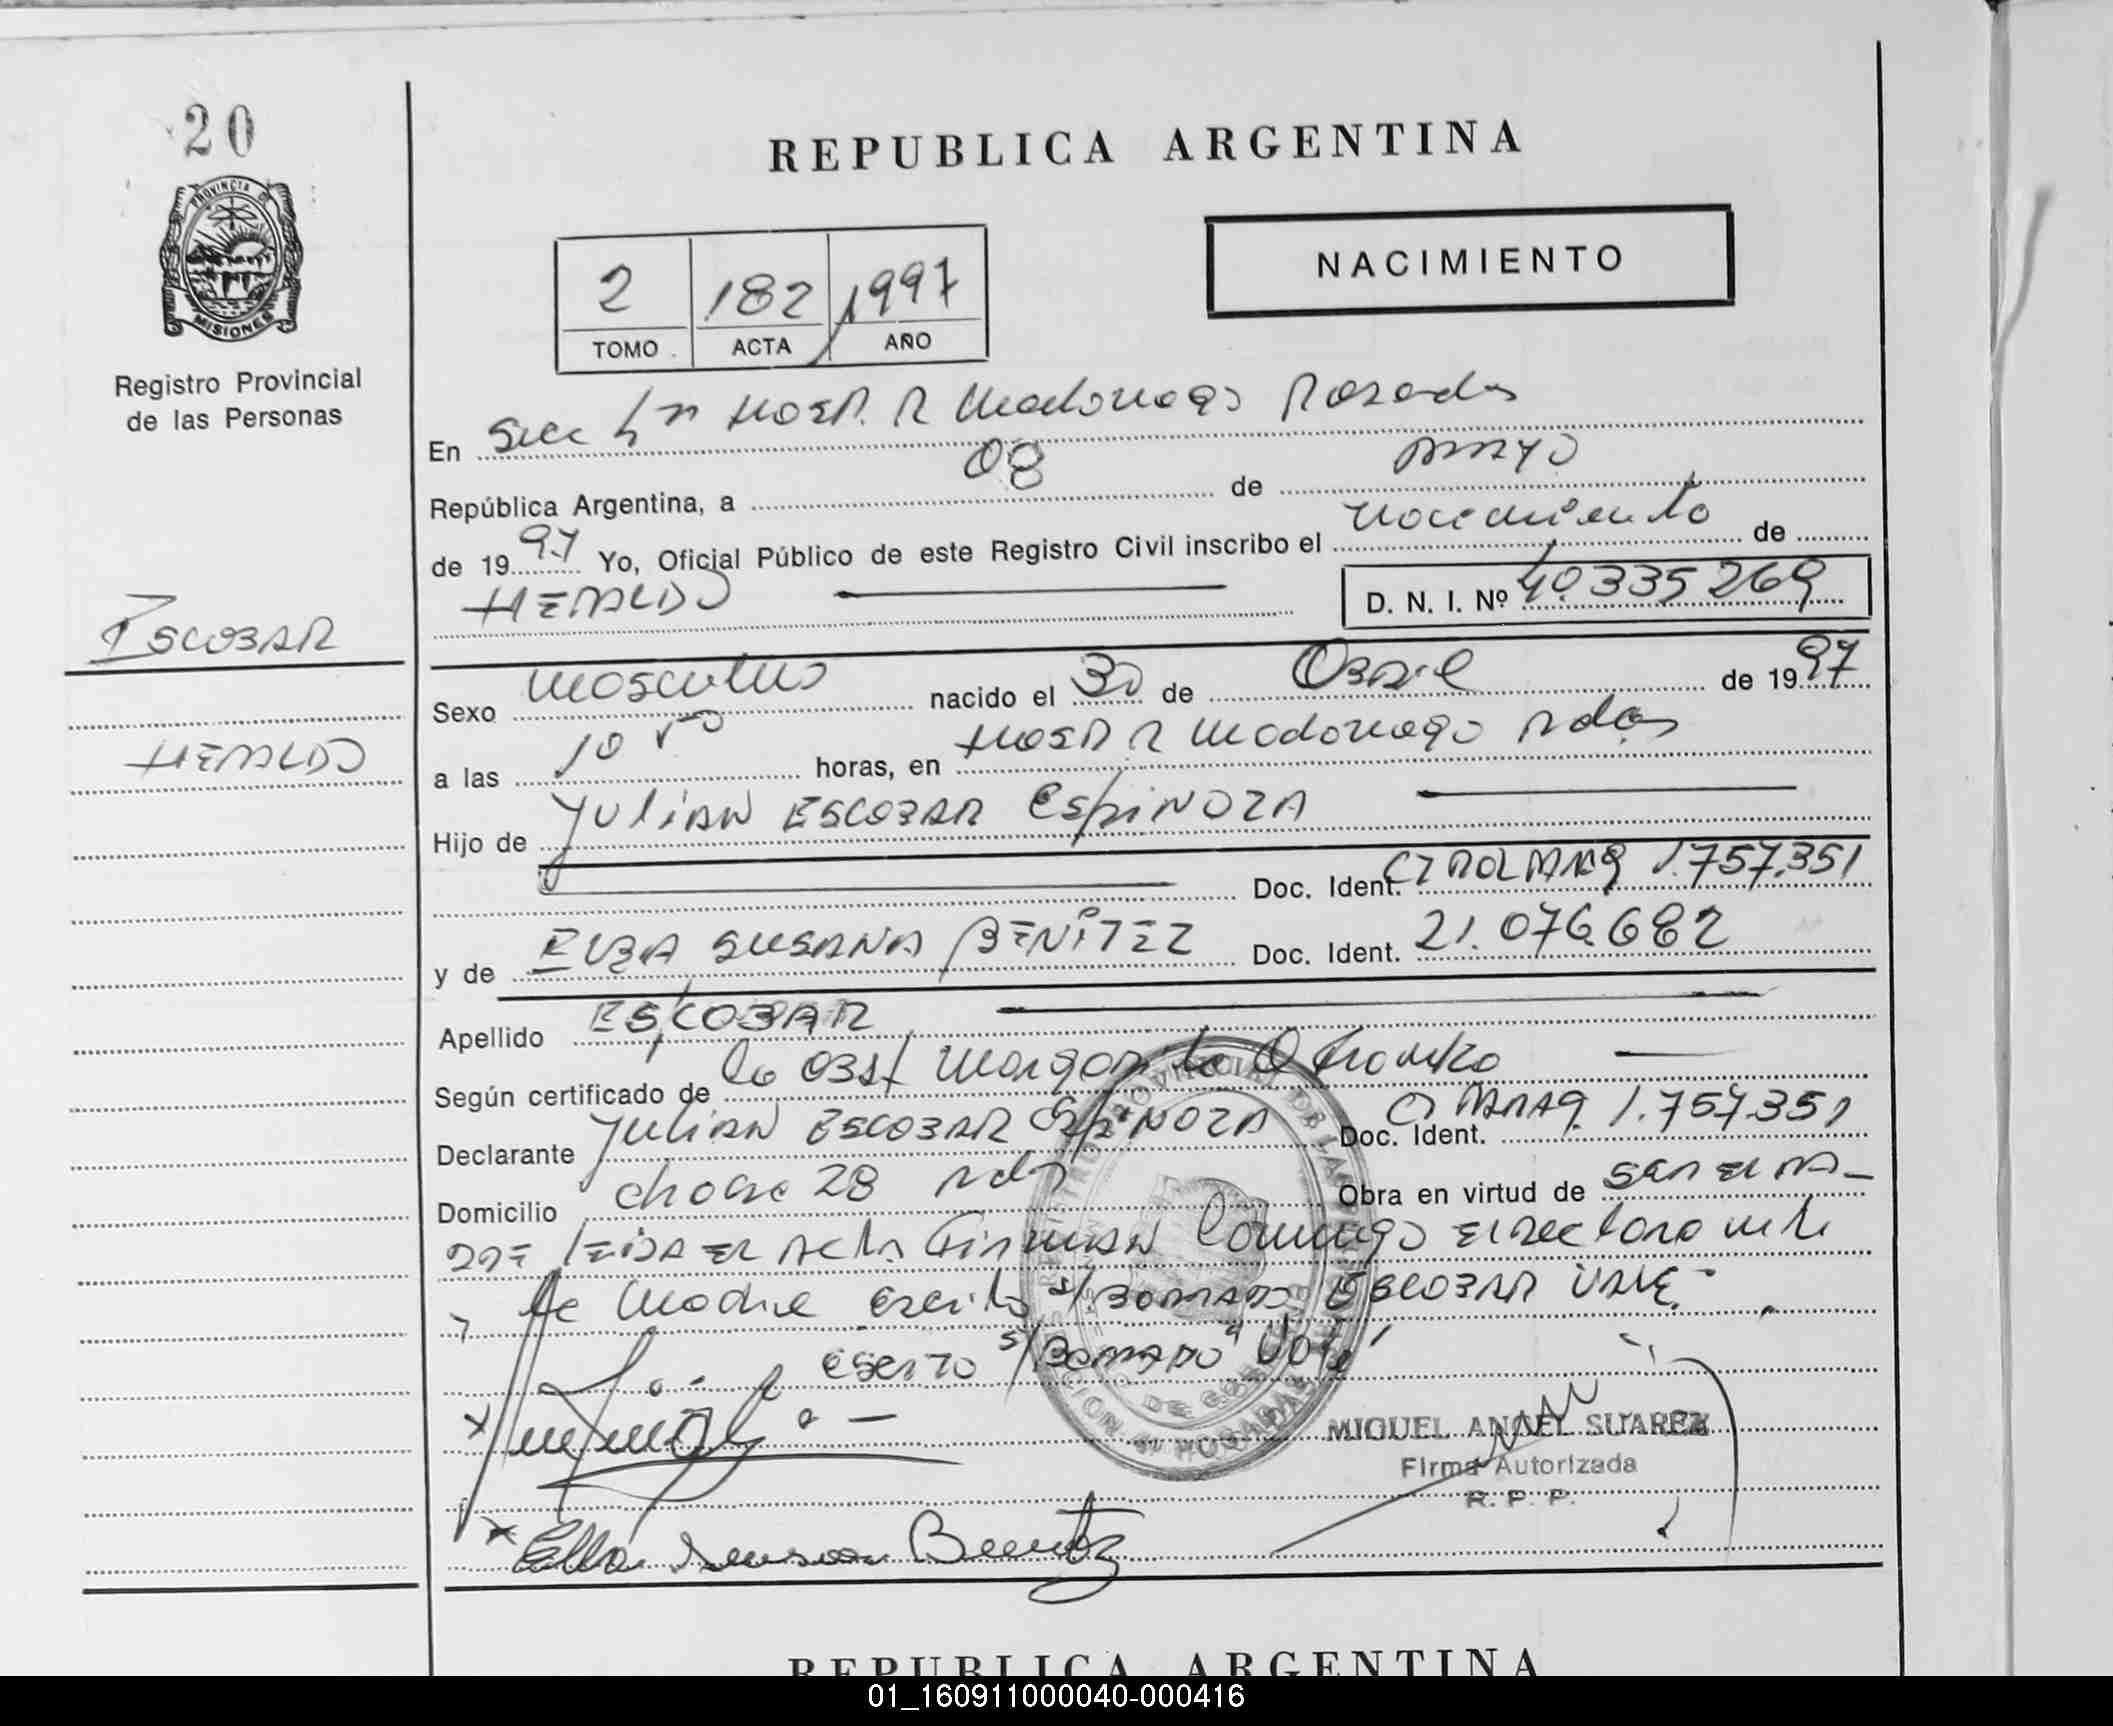 20
PROVINCIA DE
MISIONES
Registro Provincial
de las Personas
ESCOBAR
HERALDO
REPUBLICA ARGENTINA
NACIMIENTO
2 182 1997
TOMO ACTA AÑO
En Secc Hosp. R Madariaga Posadas
República Argentina, a 08 de mayo
de 1997 Yo, Oficial Público de este Registro Civil inscribo el nacimiento de
HERALDO D. N. I. Nº 40.335269
Sexo masculino nacido el 30 de Abril de 1997
a las 10 horas, en Hosp R Madariaga Pdas
Hijo de Julian ESCOBAR EspiNOZA
Doc. Ident. CI POL 1.757.351
y de ELBA SUSANA BENITEZ Doc. Ident. 21.076.682
Apellido ESCOBAR
Según certificado de la Obst Margarita
Declarante Julian ESCOBAR EspiNOZA Doc. Ident. CI 1.757.351
Domicilio chacra 28 Pdas Obra en virtud de SER EL PA-
DRE LEIDA EL ACTA Firman Conmigo El Declarante
y la Madre escrito s/BORRADO ESCOBAR VALE.-
escrito s/BORRADO "Vale"
MIGUEL ANGEL SUAREZ
Firma Autorizada
R. P. P.
Elba Susana Benitez
REPUBLICA ARGENTINA
01_160911000040-000416